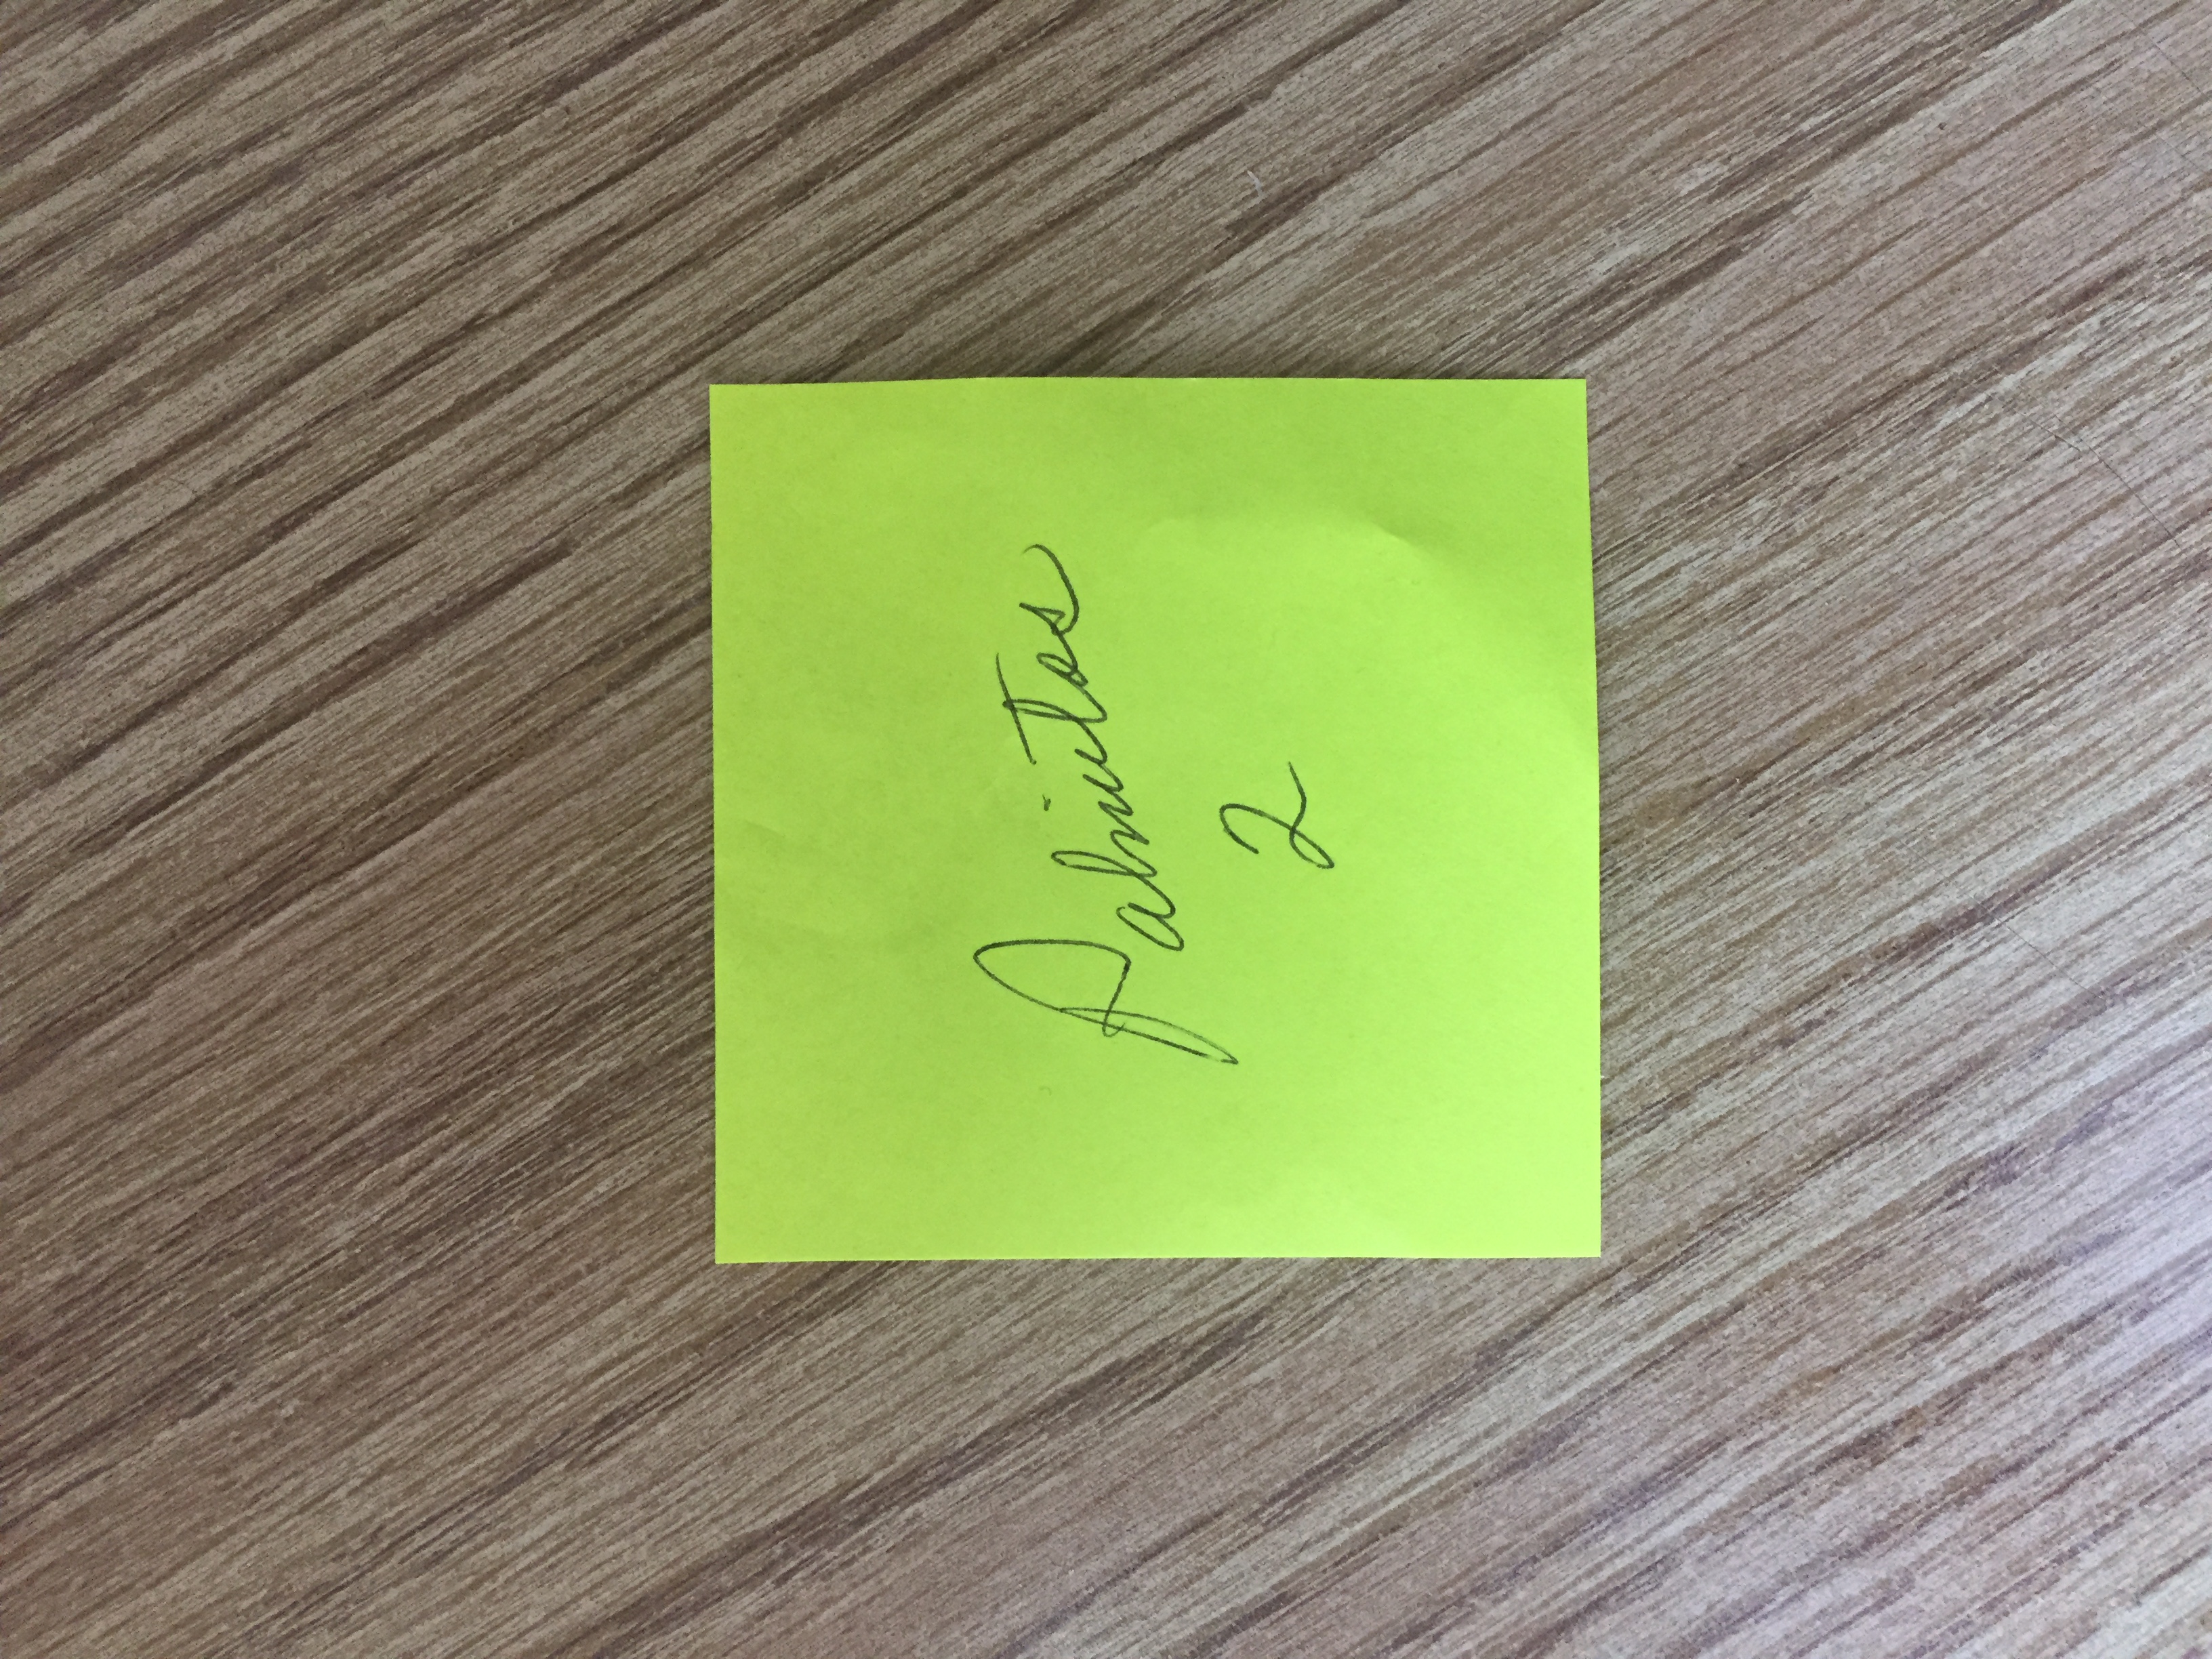 Palmitos
2